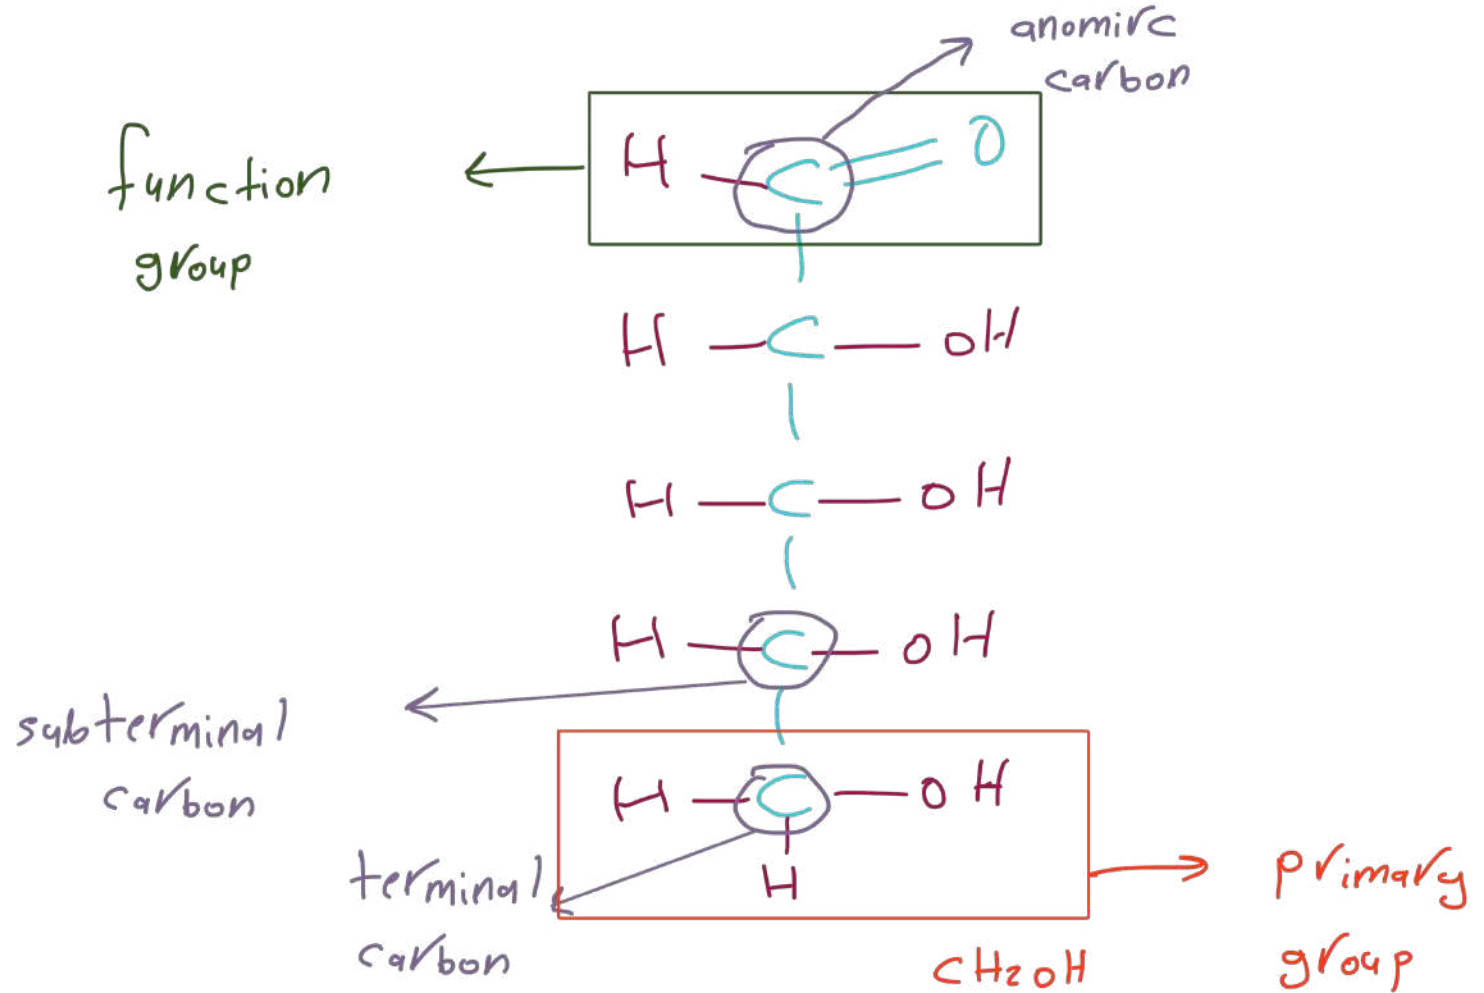 anomirc
carbon
function
group
H C O
H C OH
H C OH
H C OH
subterminal
carbon
H C OH
H
terminal
carbon
CH2OH
primary
group